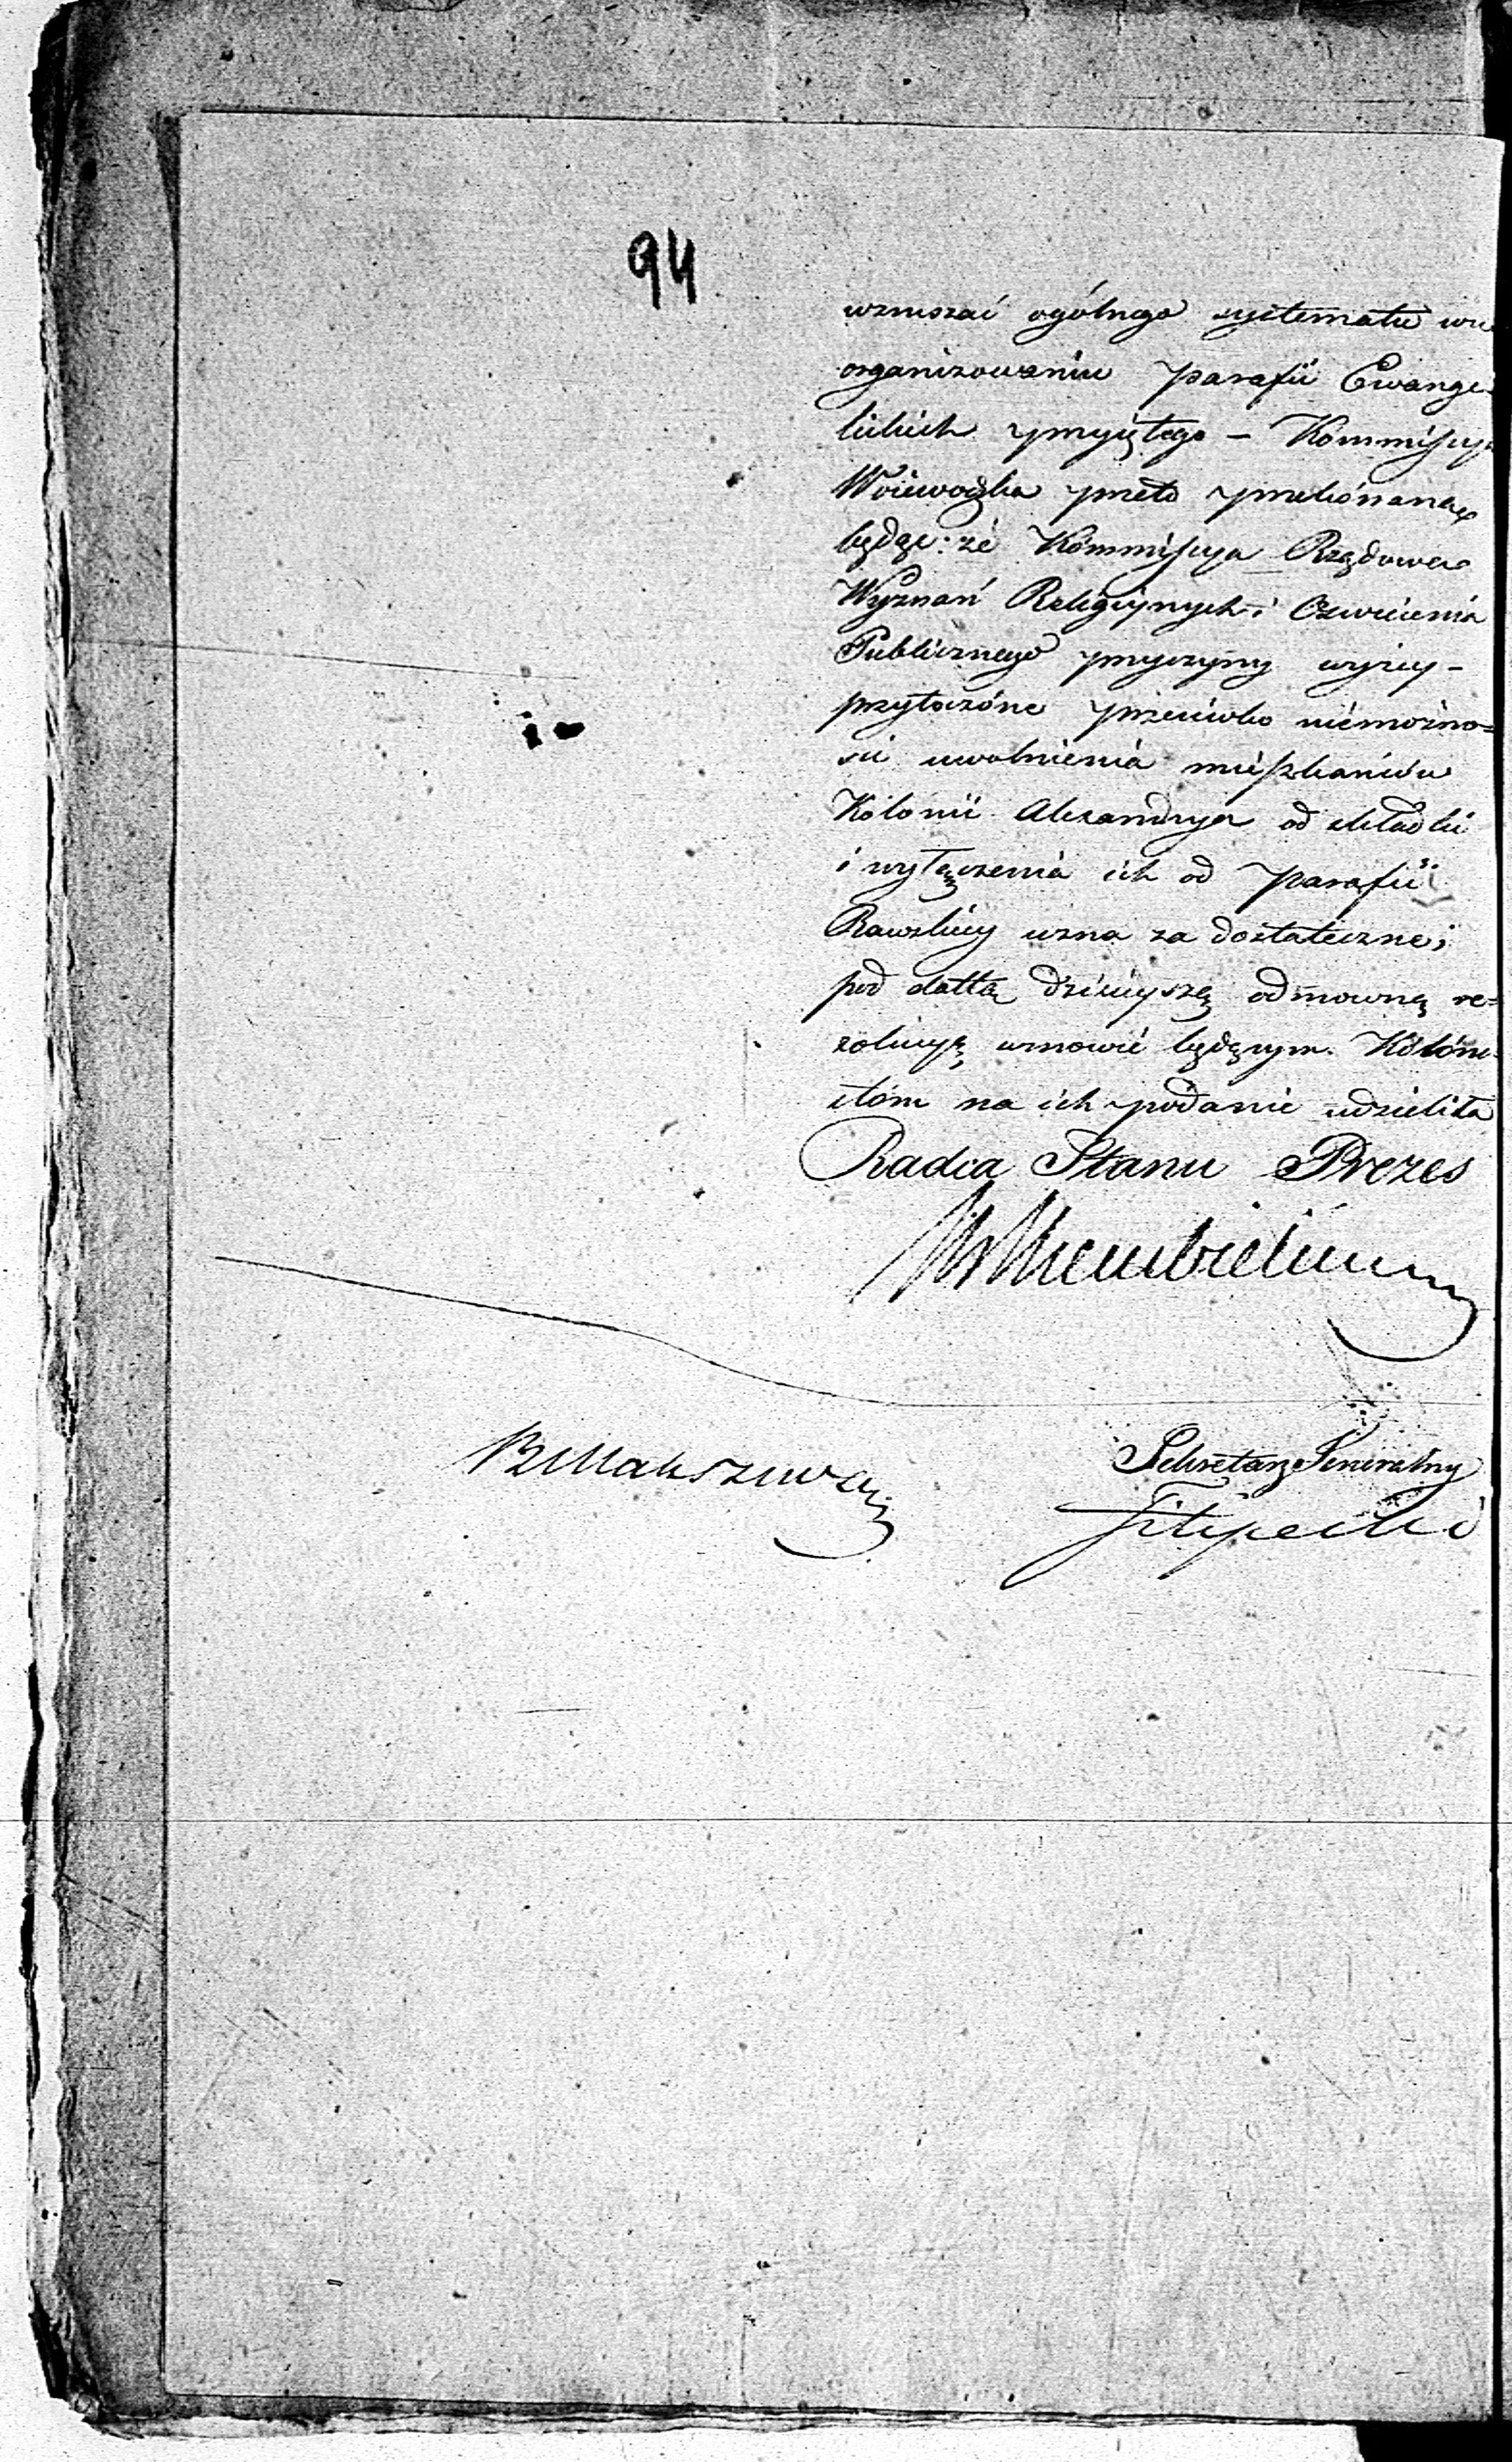 94
wzruszać ogólnego systematu we
organizowaniu parafii Ewange-
lickich przyiętego – Kommissya
Woiewodzka przeto przekonaną
będąc: że Kommissya Rządowa
Wyznań Religiynych i Oswiecenia
Publicznego przyczyny wyżey-
przytoczone przeciwko niemożno=
sci uwolnienia mieszkańców
Kolonii Alexandrya od składki
i wyłączenia ich od parafii
Rawskiey uzna za dostateczne;
pod dattą dzisieyszą odmowną re=
zolucyą wmowie będącym Koloni-
stom na ich podanie udzieliła
Radca Stanu Prezes
Sekretarz Generalny
Filipecki